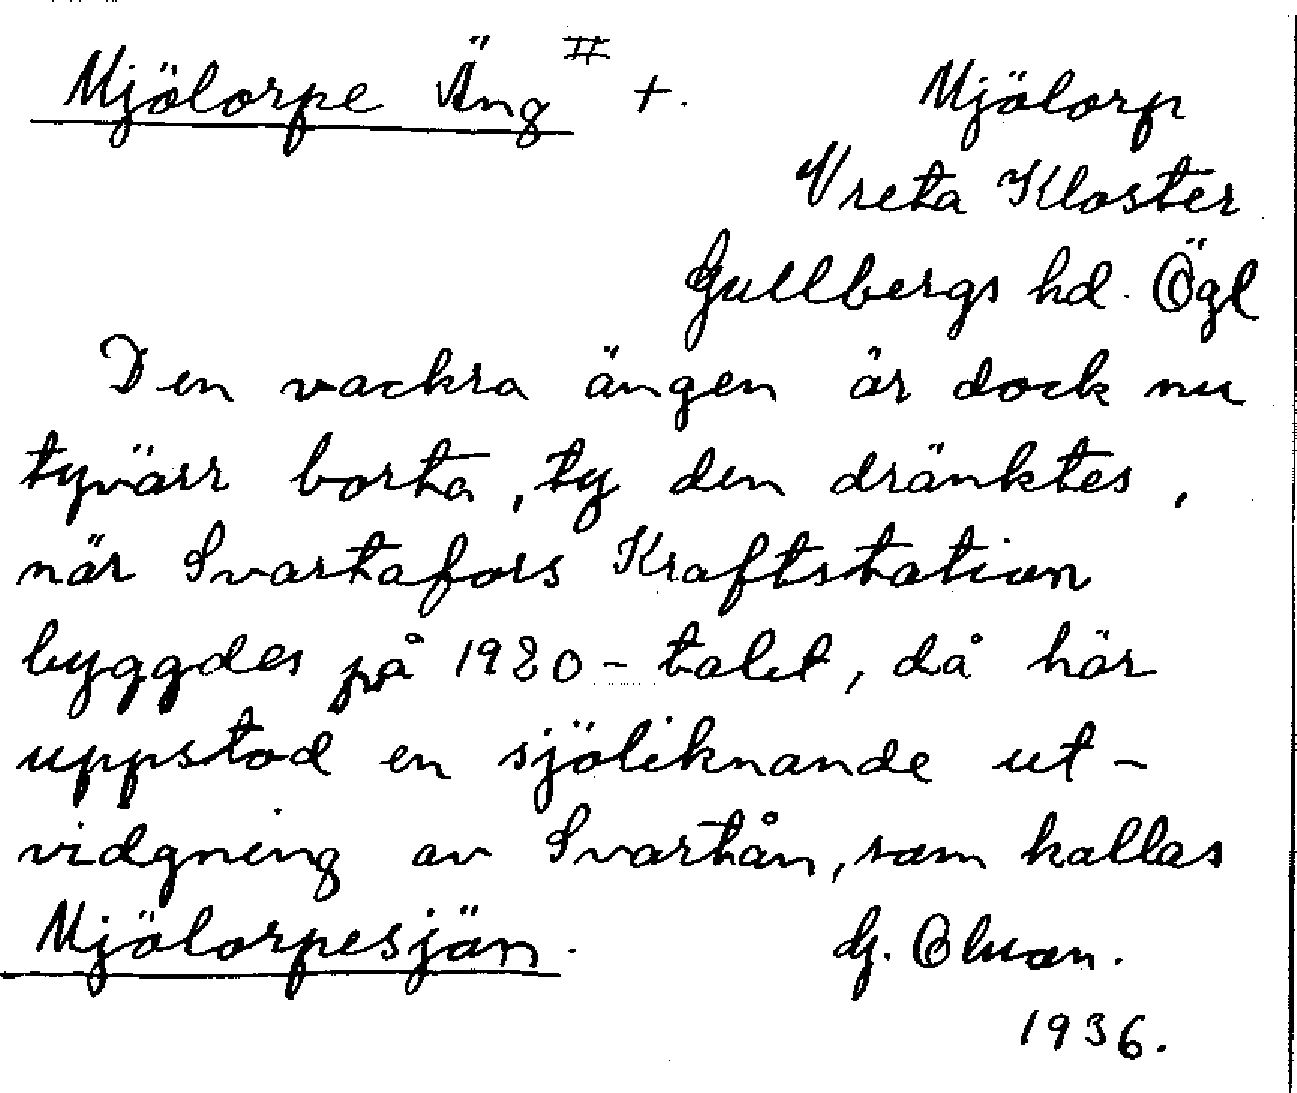 Mjölorpe Äng # +.
Mjölorp
Vreta Kloster
Gullbergs hd. Ögl
Den vackra ängen är dock nu
tyvärr borta, ty den dränktes,
när Svartafors Kraftstation
byggdes på 1920-talet, då här
uppstod en sjöliknande ut-
vidgning av Svartån, som kallas
Mjölorpesjön.
G. Olsson.
1936.